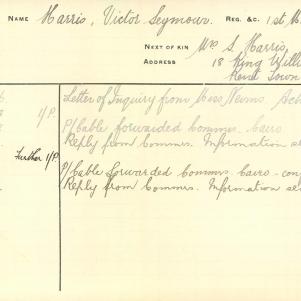 NAME Harris, Victor Seymour. REG. &C. 1st
NEXT OF KIN Mr S. Harris,
ADDRESS 18 King
Kent Town
Letter of Inquiry from Miss
1/P. P/Cable forwarded Commrs. Cairo
Reply from Commrs. Information
Further 1/P. P/Cable forwarded Commrs. Cairo -
Reply from Commrs. Information